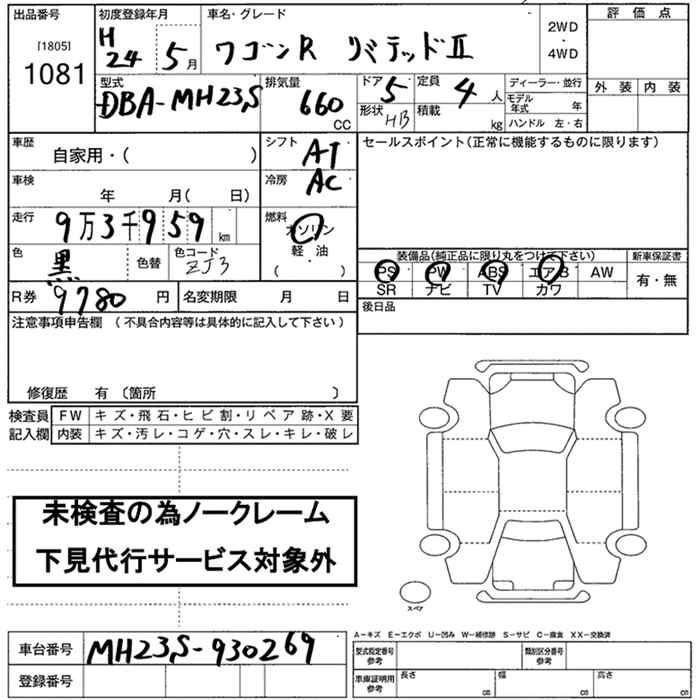 出品番号 初度登録年月 車名・グレード 評価点
[1805] H 2WD
1081 24 5月 ワゴンR リミテッドⅡ ・
4WD
型式 排気量 ドア 5 定員 4人 ディーラー・並行 外装 内装
DBA-MH23S 660 CC 形状 HB 積載 kg モデル年式 年
ハンドル 左・右
車歴 自家用・( ) シフト AT セールスポイント(正常に機能するものに限ります)
車検 年 月( 日) 冷房 AC
走行 9万3千959 km 燃料 ガソリン
軽油
( )
色 黒 色替 色コード ZJ3
装備品(純正品に限り丸をつけて下さい) 新車保証書
PS PW ABS エアB AW 有・無
SR ナビ TV カワ
R券 9780円 名変期限 月 日 後日品
注意事項申告欄 (不具合内容等は具体的に記入して下さい)
修復歴 有 〔箇所 〕
検査員 FW キズ・飛石・ヒビ割・リペア跡・X要
記入欄 内装 キズ・汚レ・コゲ・穴・スレ・キレ・破レ
未検査の為ノークレーム
下見代行サービス対象外
スペア
A-キズ E-エクボ U-凹み W-補修跡 S-サビ C-腐食 XX-交換済
車台番号 MH23S-930269 型式指定番号 参考 類別区分番号 参考
登録番号 車庫証明用 参考 長さ cm 幅 cm 高さ cm